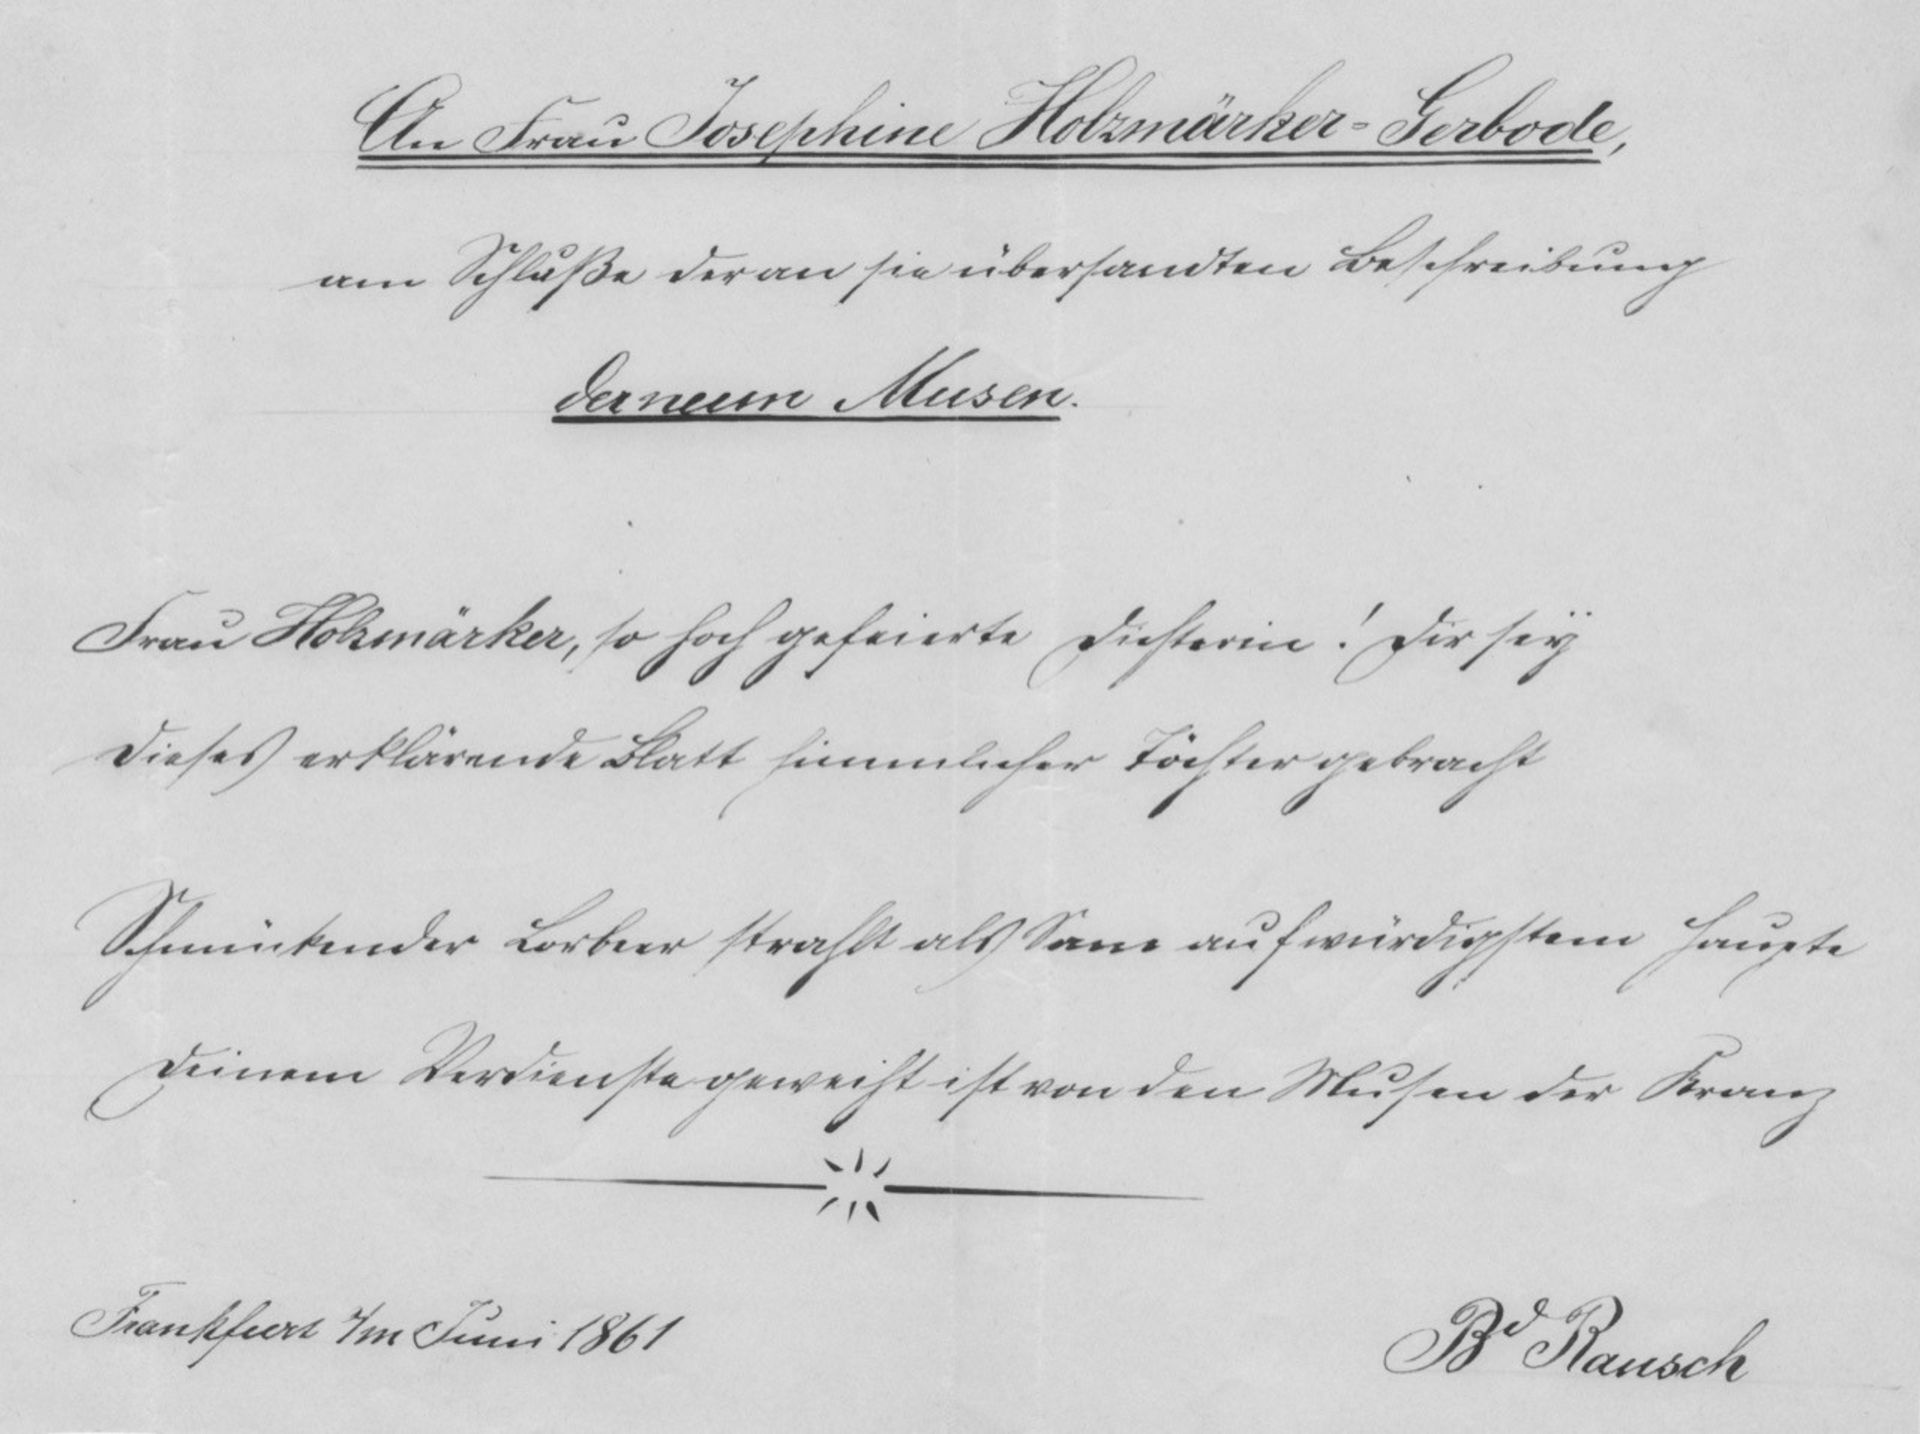 An Frau Josephine Holzmärker-Gerbode,
am Schluße der an sie übersandten Beschreibung
der neun Musen.
Frau Holzmärker, so hoch gefeierte Dichterin! Dir sey
dieses erklärende Blatt himmlischer Töchter gebracht
Schmückender Lorbeer strahlt als auf würdigstem Haupte
Deinem Verdienste geweiht ist von den Musen der Kranz
Frankfurt Juni 1861
Bd Rausch